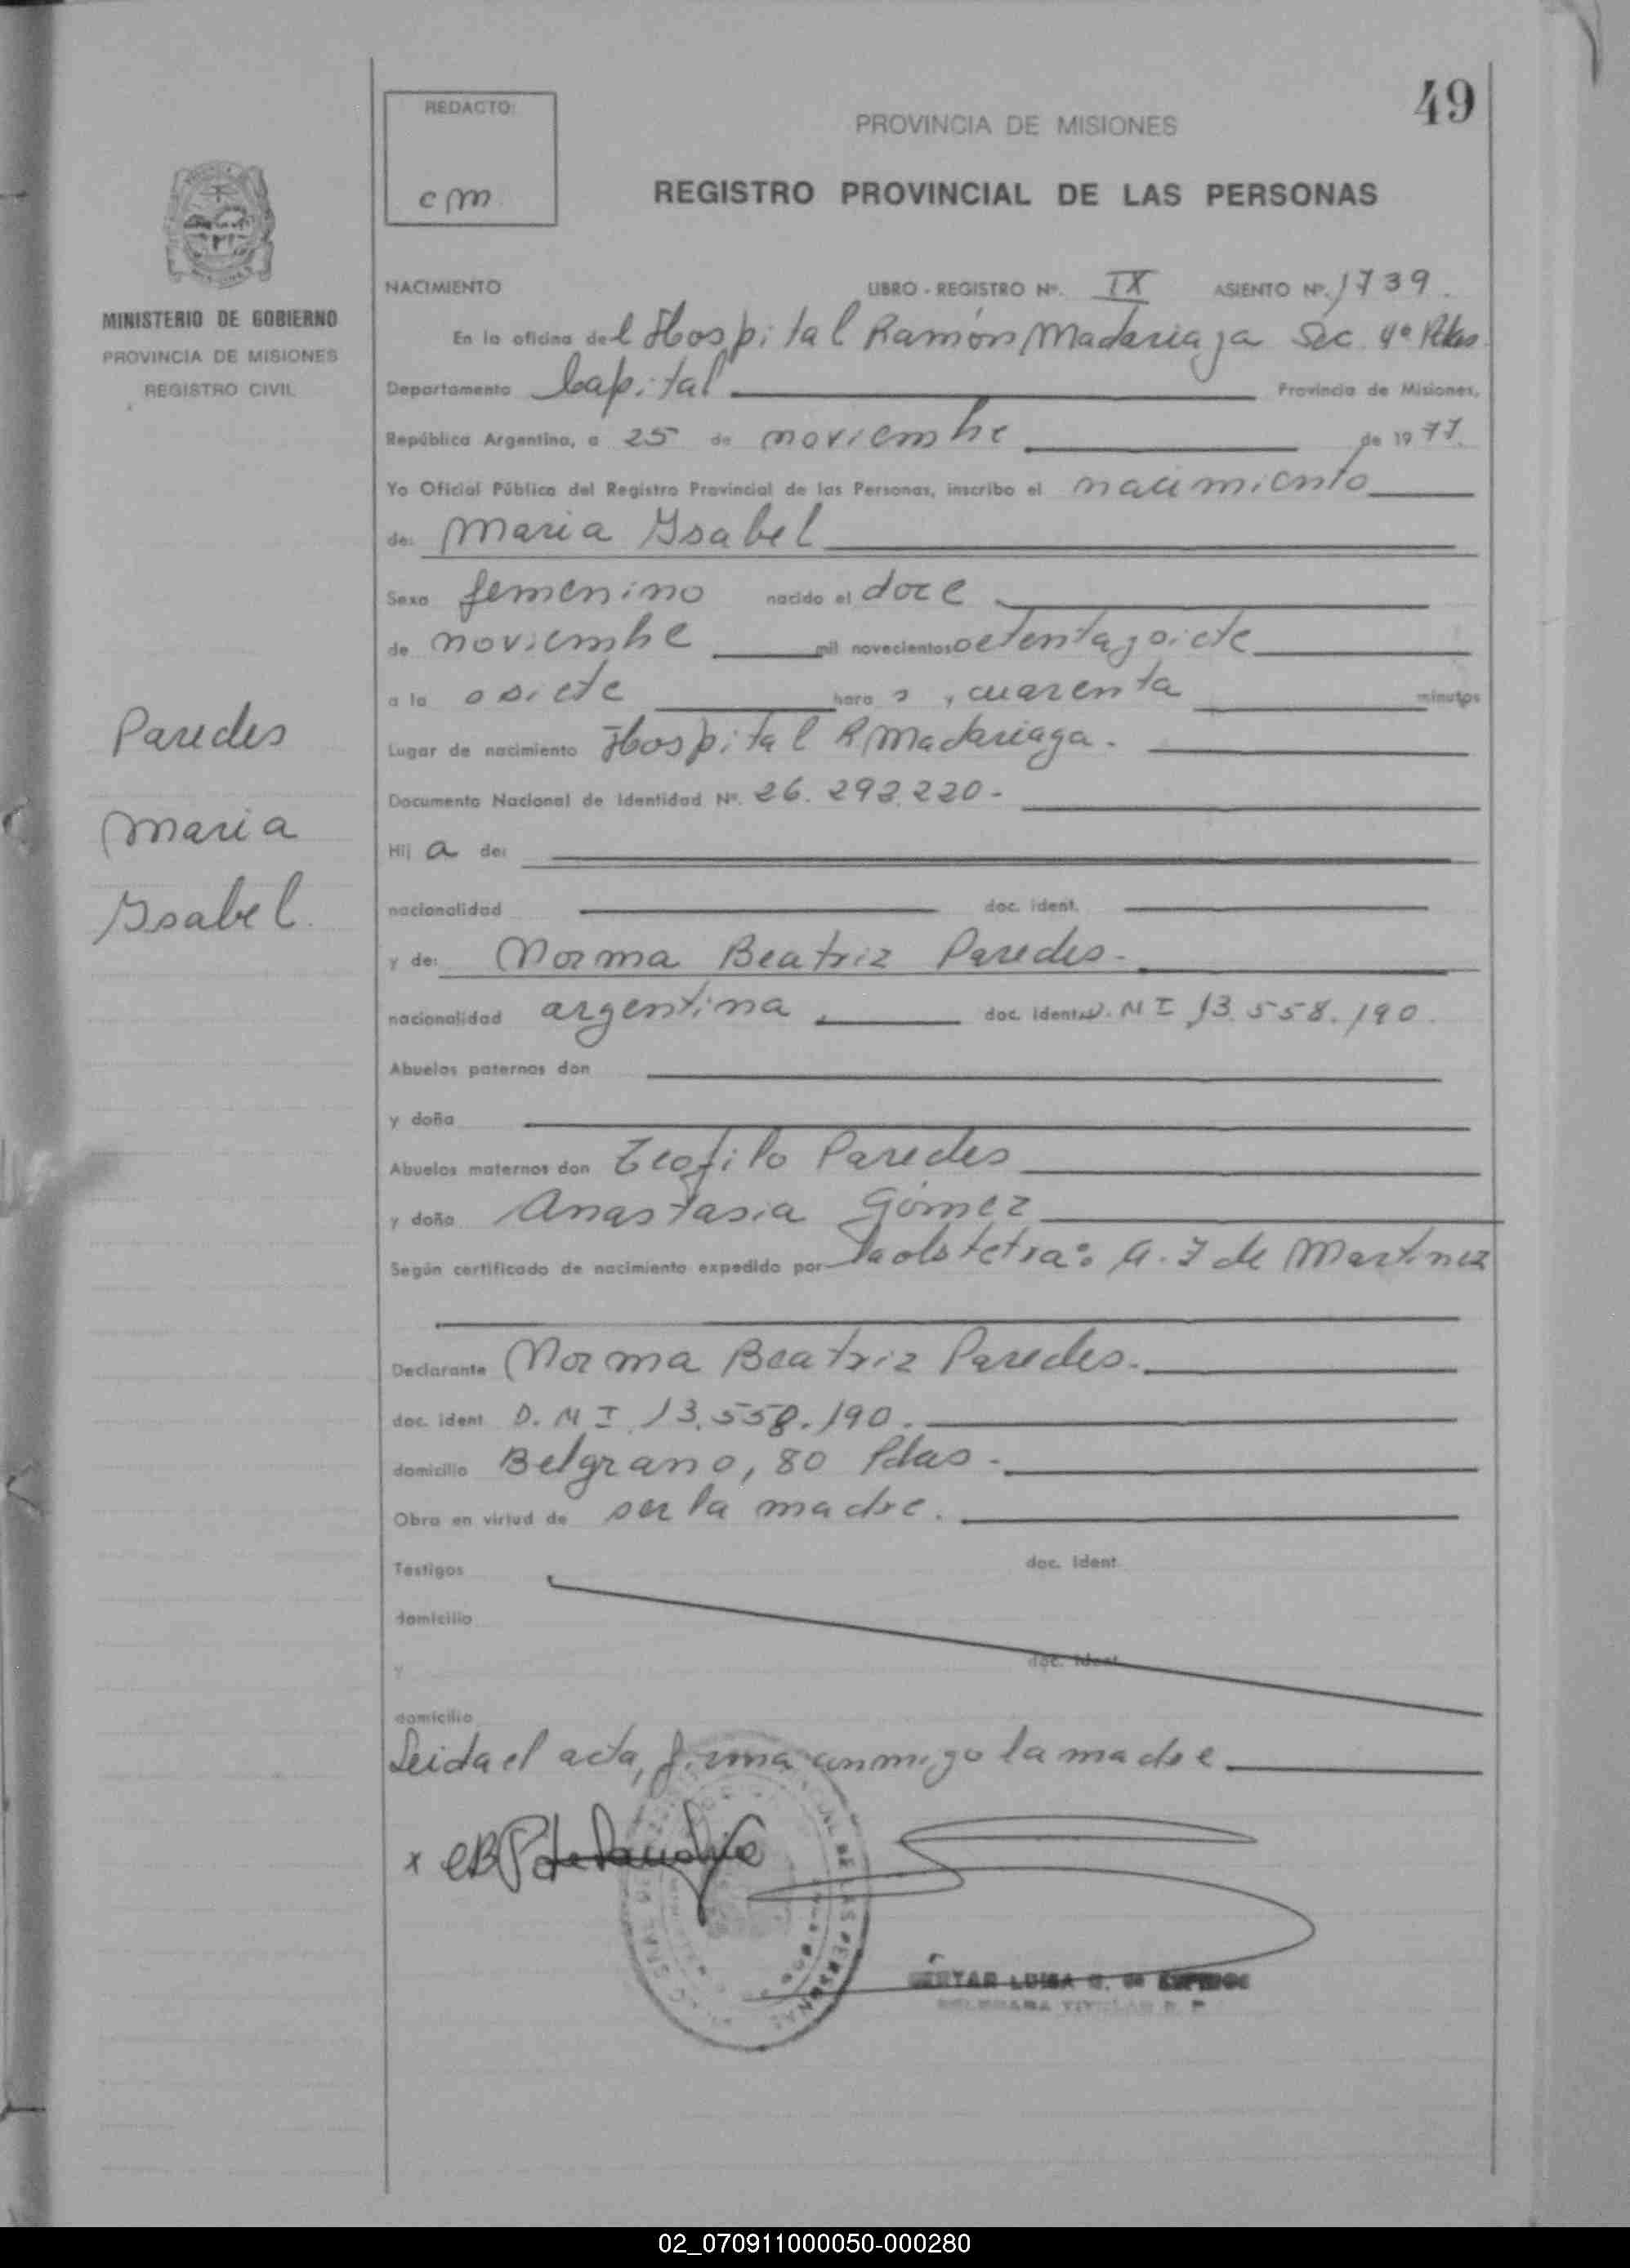 49
REDACTO:
cm.
PROVINCIA DE MISIONES
REGISTRO PROVINCIAL DE LAS PERSONAS
MINISTERIO DE GOBIERNO
PROVINCIA DE MISIONES
REGISTRO CIVIL
NACIMIENTO LIBRO - REGISTRO Nº. IX ASIENTO Nº. 1739.
En la oficina del Hospital Ramón Madariaga Sec. 4ª Pdas.
Departamento Capital Provincia de Misiones,
República Argentina, a 25 de noviembre de 1977.
Yo Oficial Público del Registro Provincial de las Personas, inscribo el nacimiento
de: Maria Ysabel
Sexo femenino nacido el doce
de noviembre mil novecientos setenta y siete
a la s siete hora s, cuarenta minutos
Paredes
Maria
Ysabel.
Lugar de nacimiento Hospital R. Madariaga.
Documento Nacional de Identidad Nº. 26.292.220-
Hij a de:
nacionalidad doc. ident.
y de: Norma Beatriz Paredes-
nacionalidad argentina doc. ident. D.NI 13.558.190.
Abuelos paternos don
y doña
Abuelos maternos don Teofilo Paredes
y doña Anastasia Gómez
Según certificado de nacimiento expedido por la obstetra: A. I de Martinez
Declarante Norma Beatriz Paredes.
doc. ident D.NI 13.558.190.
domicilio Belgrano, 80 Pdas-
Obra en virtud de ser la madre.
Testigos doc. ident
domicilio
y doc. ident
domicilio
Leida el acta, firma conmigo la madre
x
LUISA G. de
02_070911000050-000280